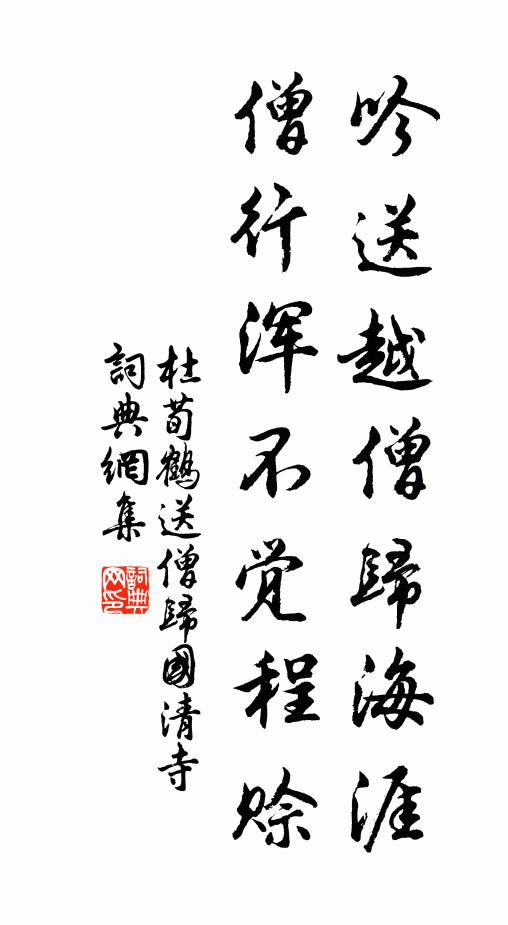 吟送越僧歸海涯
僧行浑不觉程赊
杜荀鶴送僧歸國清寺
詞典網集
詞典
网印